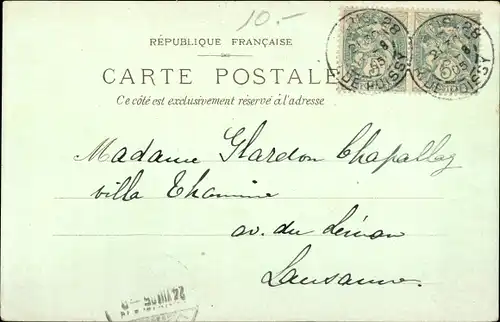 10.-
RÉPUBLIQUE FRANÇAISE
CARTE POSTALE
Ce côté est exclusivement réservé à l'adresse
28
R. DE POISSY
5
28
R. DE POISSY
5
Madame Glardon Chapallaz
villa Thamine
av. du Léman
Lausanne.
24 VIII 05